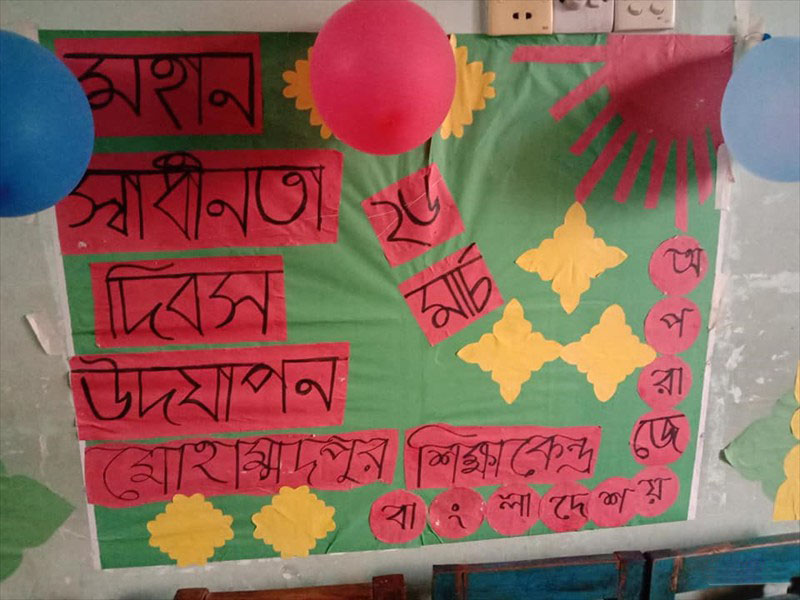 মহান
স্বাধীনতা
দিবস
উদযাপন
২৬
মার্চ
মোহাম্মদপুর শিক্ষাকেন্দ্র
অপরাজেয়
বাংলাদেশ